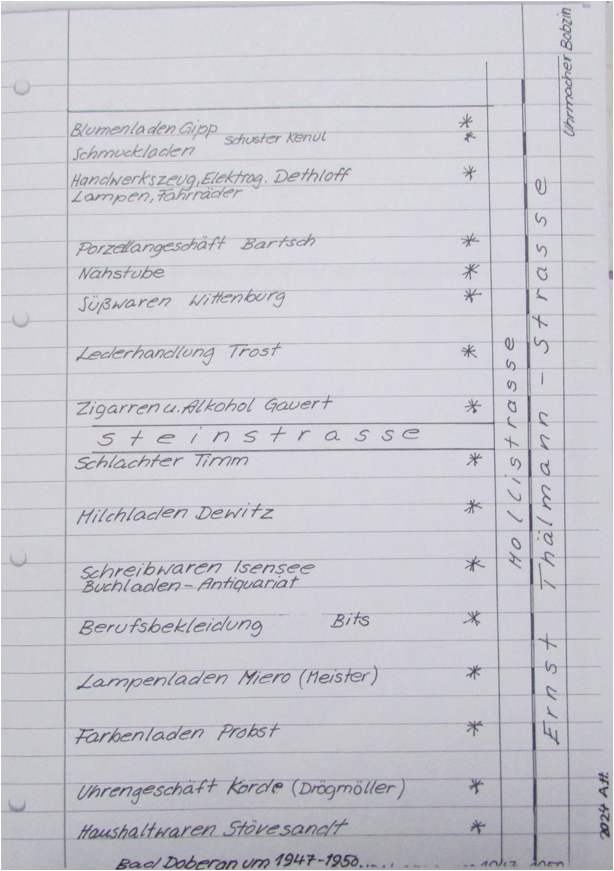 Blumenladen Gipp *
Schuster Kenul *
Schmuckladen
Handwerkszeug, Elektrog. Dethloff *
Lampen, Fahrräder
Porzellangeschäft Bartsch *
Nähstube *
Süßwaren Wittenburg *
Lederhandlung Trost *
Zigarren u. Alkohol Gauert *
Steinstrasse
Schlachter Timm *
Milchladen Dewitz *
Schreibwaren Isensee *
Buchladen - Antiquariat
Berufsbekleidung Bits *
Lampenladen Miero (Meister) *
Farbenladen Probst *
Uhrengeschäft Korde (Drögmöller) *
Haushaltwaren Stövesandt *
Bad Doberan um 1947-1950
Mollistrasse
Ernst Thälmann - Strasse
Uhrmacher Bobzin
2024